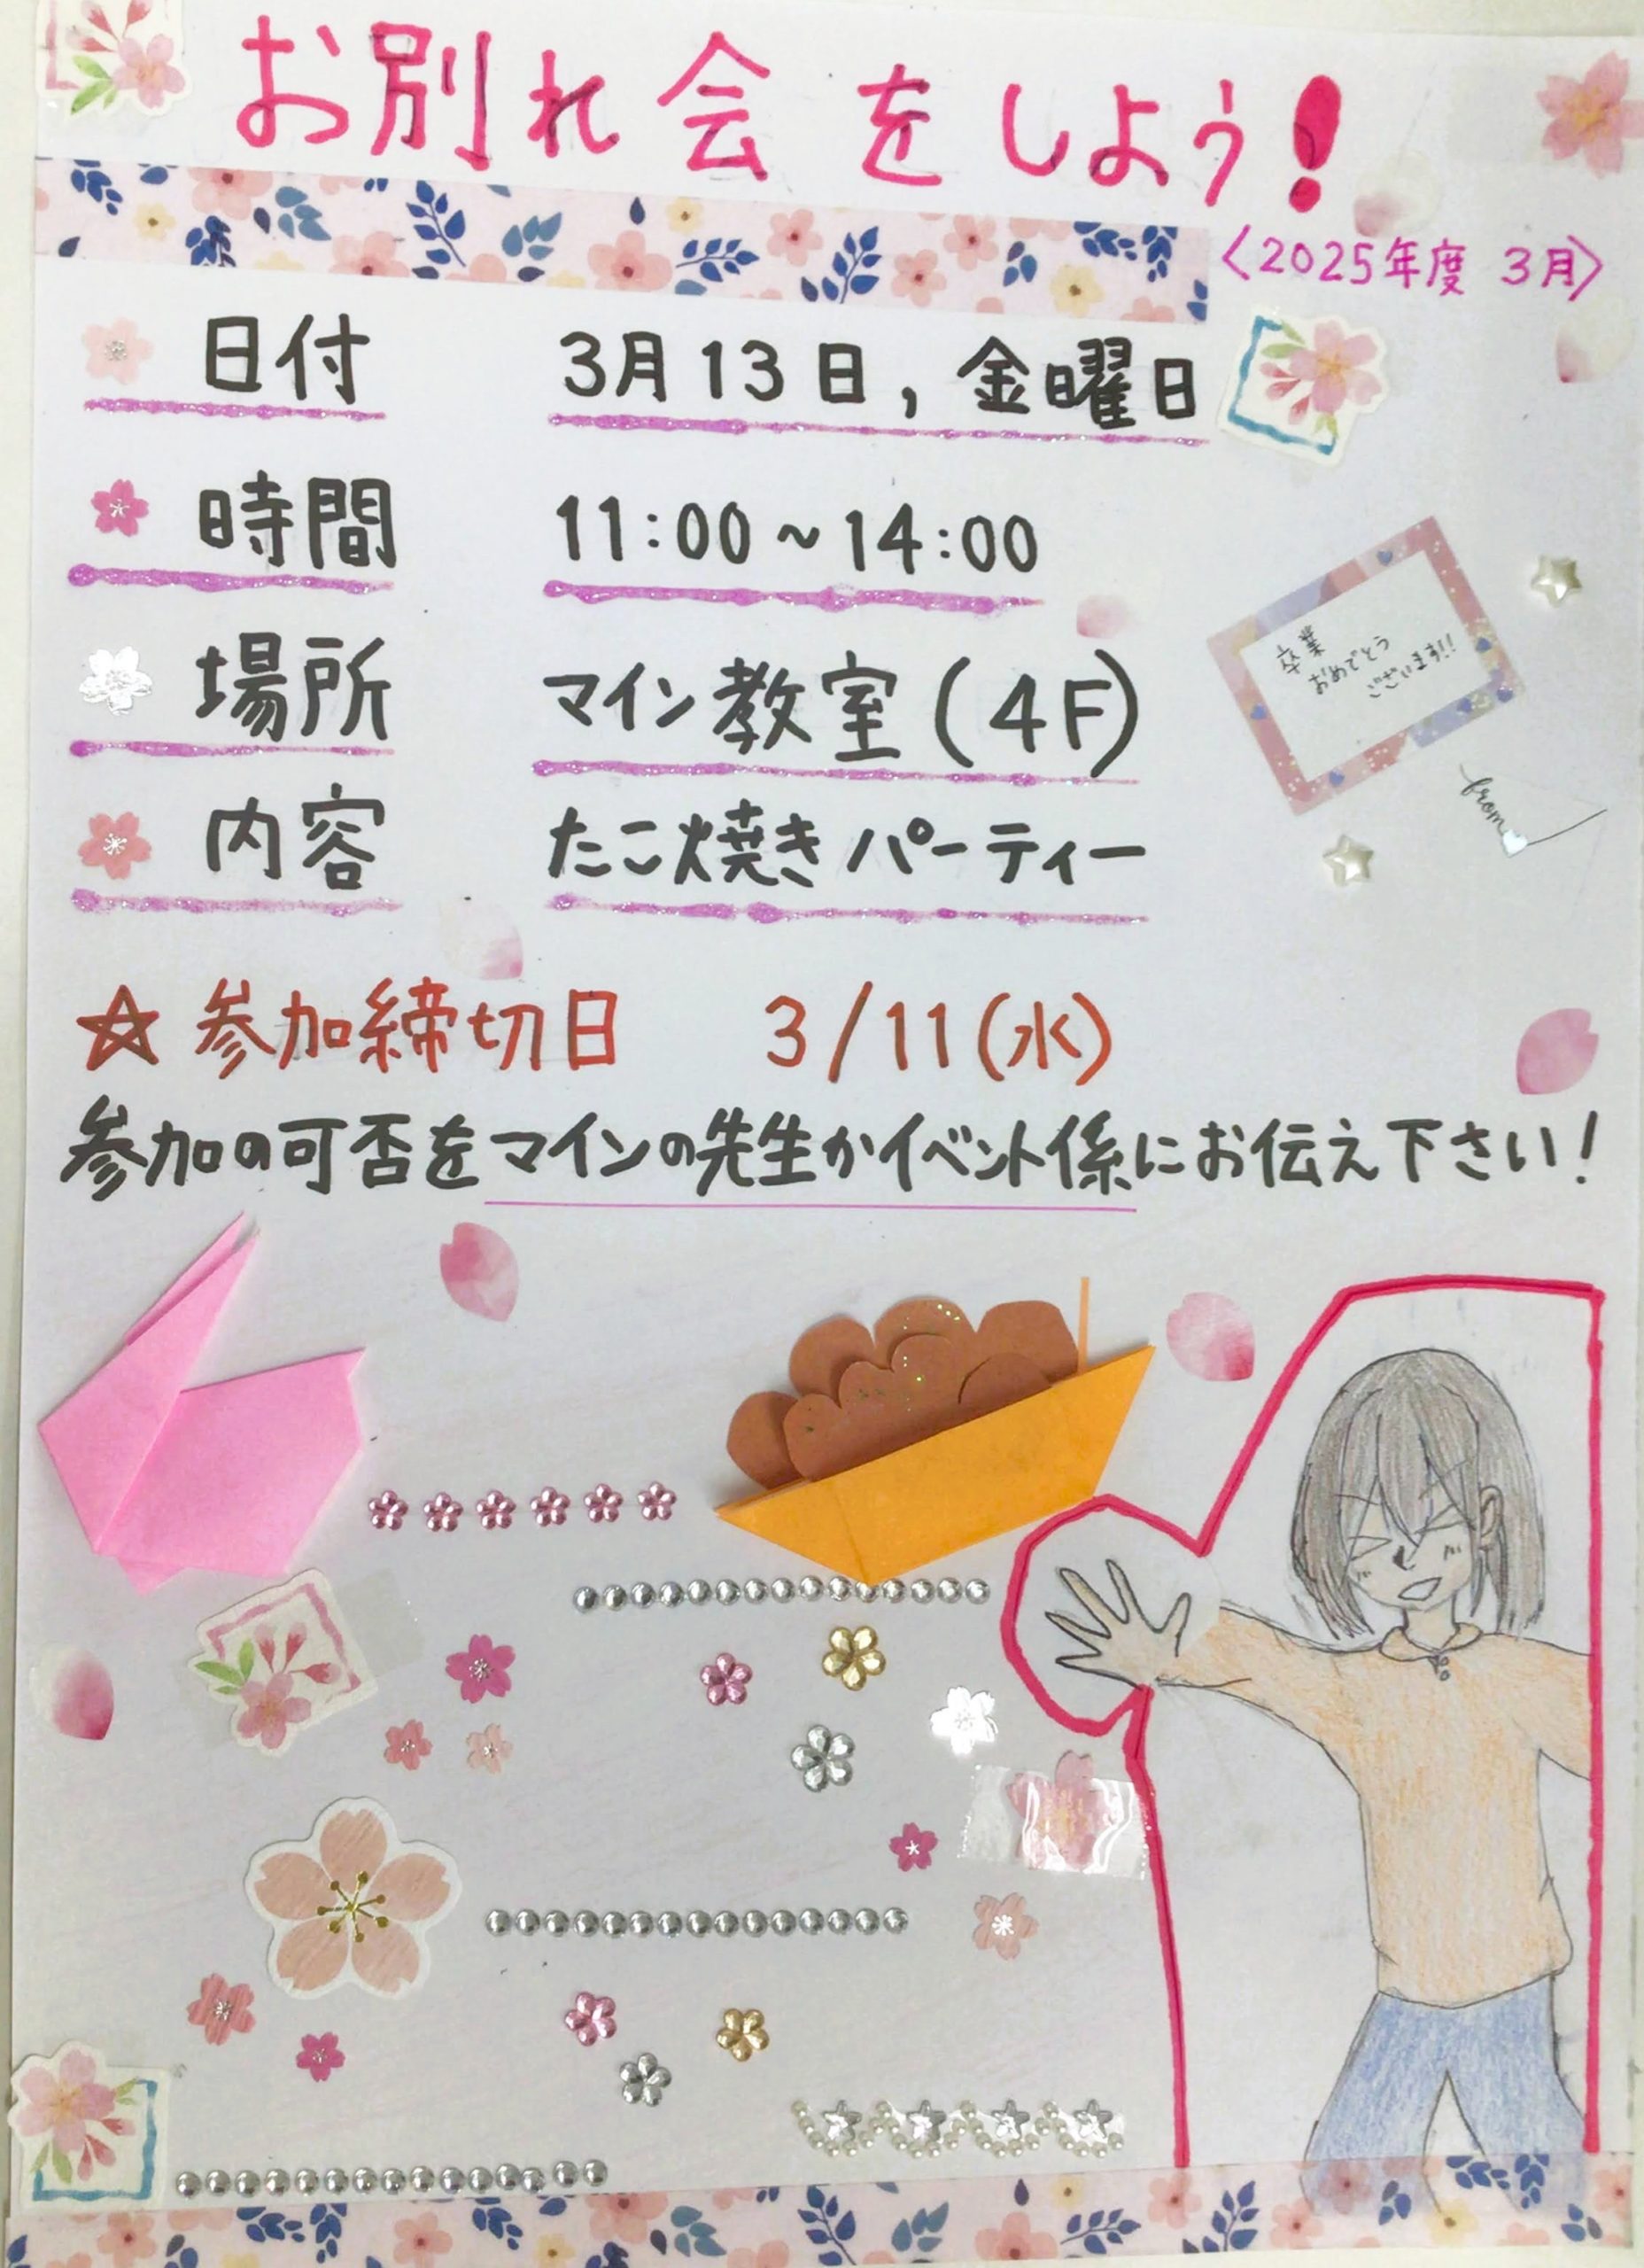 お別れ会をしよう!
〈2025年度 3月〉
日付 3月13日, 金曜日
時間 11:00~14:00
場所 マイン教室(4F)
内容 たこ焼きパーティー
卒業
おめでとう
ございます!!
from
☆参加締切日 3/11(水)
参加の可否をマインの先生かイベント係にお伝え下さい!